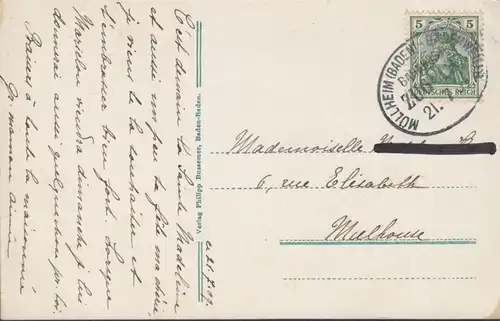 C'est demain la Sainte Madeleine
et aussi un peu ta fête ma chérie
je viens te la souhaiter et
t'embrasser bien fort. Lorsque
viendra dimanche je lui
donnerai aussi quelque chose pr. toi.
Baisers à toute la maisonnée
Ta maman
ce 21. 7. 09.
Verlag Philipp Bussemer, Baden-Baden.
5 5
DEUTSCHES REICH
MÜLLHEIM (BADEN)
BAHNPOST
ZUG
21. 7
Mademoiselle
6, rue Elisabeth
Mulhouse